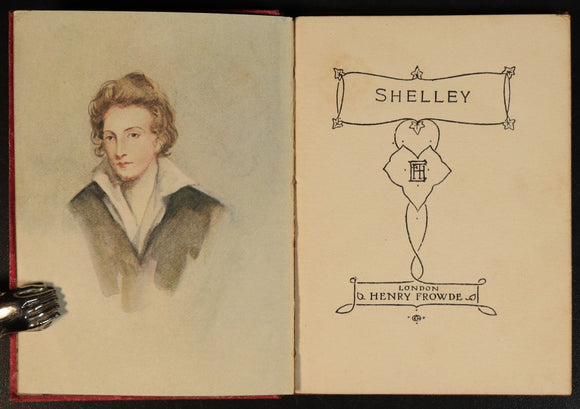 SHELLEY
LONDON
HENRY FROWDE